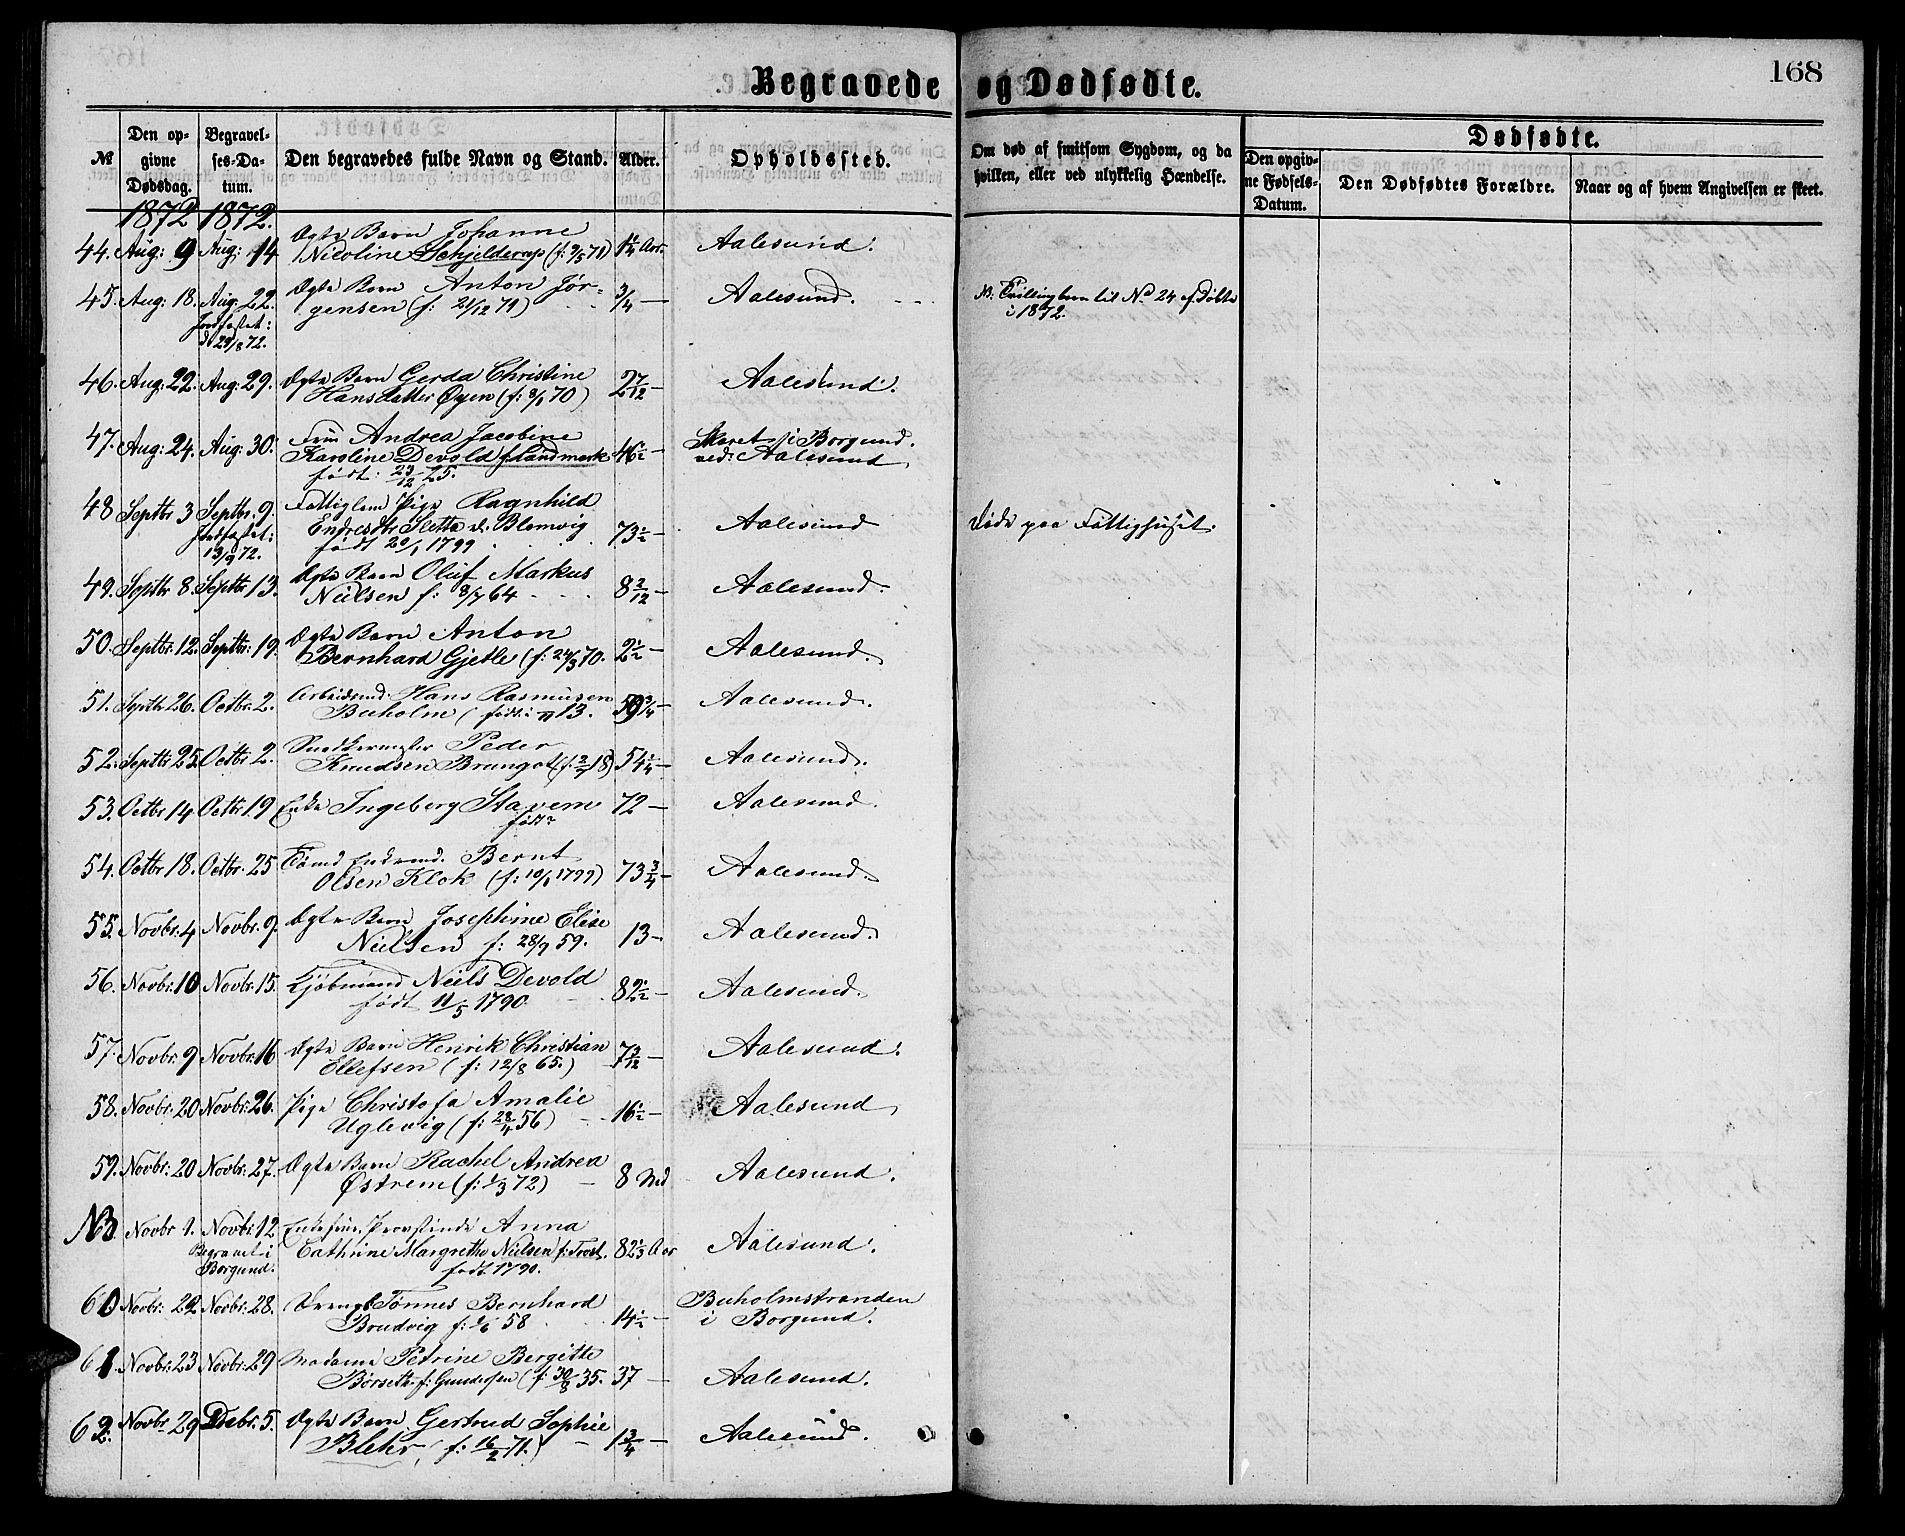 Begravede og Dødfødte.
168
№
Den opgivne Dødsdag.
Begravelses-Datum.
Den begravedes fulde Navn og Stand.
Alder.
Opholdssted.
Om død af smitsom Sygdom, og da hvilken, eller ved ulykkelig Hændelse.
Dødfødte.
Den opgivne Fødsels-Datum.
Den Dødfødtes Forældre.
Naar og af hvem Angivelsen er skeet.
1872 1872.
Ægte Barn Johanne
44. Aug: 9 Aug: 14 Nicoline Schjelderup (f: 9/5 71) 1 1/4 Aar. Aalesund.
45. Aug: 18. Aug: 22. Ægte Barn Anton Jør- 3/4 — Aalesund. NB: Tvillingbarn til No 24 af Døbte
Jordfæstet: gensen (f: 21/12 71) i 1872.
d: 29/8 72.
46. Aug: 22. Aug: 29. Ægte Barn Gerda Christine 2 7/12 — Aalesund.
Hansdatter Øyen (f: 8/1 70)
47. Aug: 24. Aug: 30. Frue Andrea Jacobine 46 1/2 — Skaret i Borgund.
Karoline Devold f. Landmark ved: Aalesund
født: 23/12 25.
48 Septbr 3 Septbr. 9. Fattiglem Pige Ragnhild
Jordfæstet: Endresdtr Sletta v: Blomvig 73 1/2 — Aalesund Døde paa Fattighuset.
13/9 72. født 20/1 1799
49. Septbr 8. Septbr 13. Ægte Barn Oluf Markus 8 2/12 — Aalesund.
Nielsen f: 8/7 64
50. Septbr. 12. Septbr: 19. Ægte Barn Anton 2 1/2 — Aalesund.
Bernhard Gjetle (f: 24/3 70.
51. Septbr 26. Octbr. 2. Arbeidsmd. Hans Rasmusen 59 3/4 — Aalesund.
Buholm (født: 13.
52. Septbr 25. Octbr 2. Snedkermester Peder 54 1/4 — Aalesund.
Knudsen Brungot (f. 2/7 18)
53. Octbr 14 Octbr 19 Enke Ingeborg Stavem 72 — Aalesund.
født?
54. Octbr 18. Octbr. 25 Bernt 73 3/4 — Aalesund.
Olsen Klok (f: 10/1 1799)
55. Novbr. 4 Novbr. 9. Ægte Barn Josephine Elise 13 — Aalesund.
Nielsen f: 28/9 59.
56. Novbr: 10 Novbr. 15. Kjøbmand Niels Devold 82 1/2 — Aalesund.
født 11/5 1790
57. Novbr: 9 Novbr. 16 Ægte Barn Henrik Christian 7 3/12 — Aalesund.
Ellefsen (f: 12/8 65.)
58. Novbr: 20 Novbr: 26. Pige Christofa Amalie 16 1/2 — Aalesund
Uglevig (f: 28/4 56)
59. Novbr: 20 Novbr. 27. Ægte Barn Rachel Andrea 8 Md Aalesund.
Østrem (f: 1/3 72)
NB Novbr 1. Novbr. 12 Enkefrue, Provstinde Anna
Begravet i Cathrine Margrethe Nielsen f: Frost. 82 1/3 Aar Aalesund.
Borgund. født 1790.
60 Novbr: 22. Novbr: 28. Dreng Tønnes Bernhard 14 1/2 — Buholmstranden
Brudvig f: 1/6 58 i Borgund.
61. Novbr: 23 Novbr: 29 Madame Petrine Bergitte
Børseth f: Gundersen (f: 30/8 35. 37 — Aalesund.
62. Novbr. 29 Debr: 5. Ægte Barn Gertrud Sophie 1 3/4 — Aalesund.
Blehr (f: 16/2 71.)